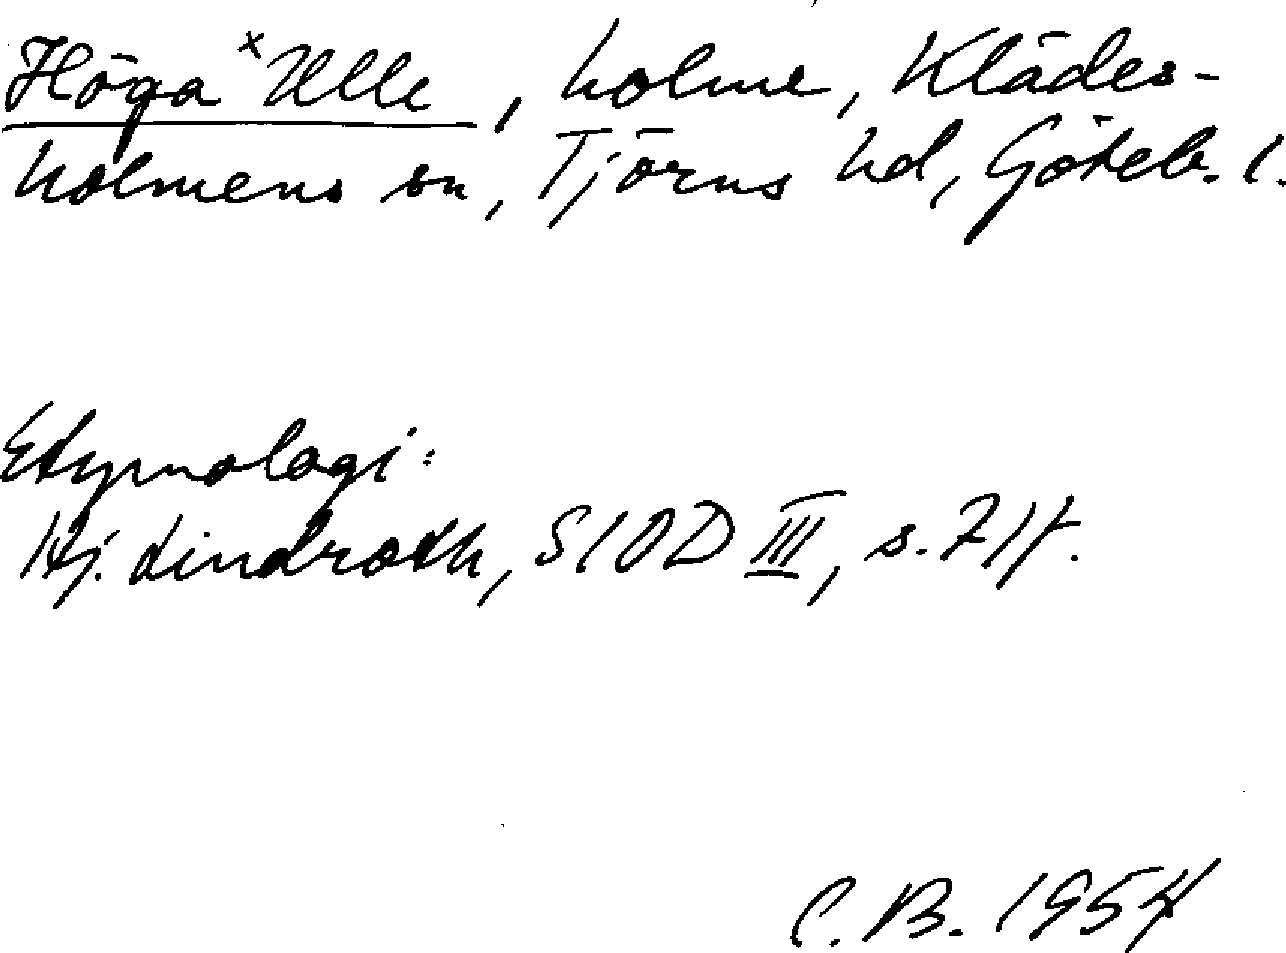 Höga ˣUlle, holme, Klädes-
holmens sn, Tjörns hd, Göteb. l.
Etymologi:
Hj. Lindroth, SIOD III, s. 71f.
C. B. 1954